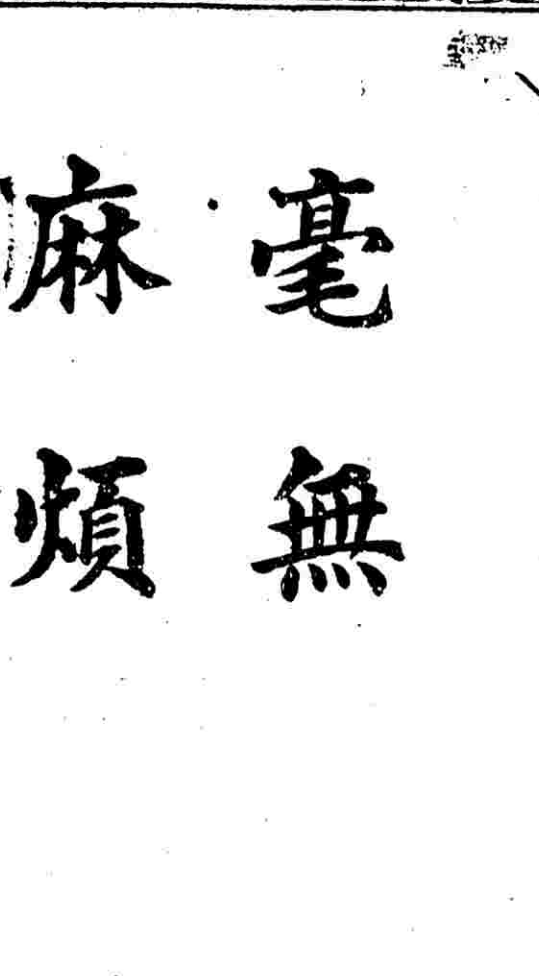 毫無
麻煩